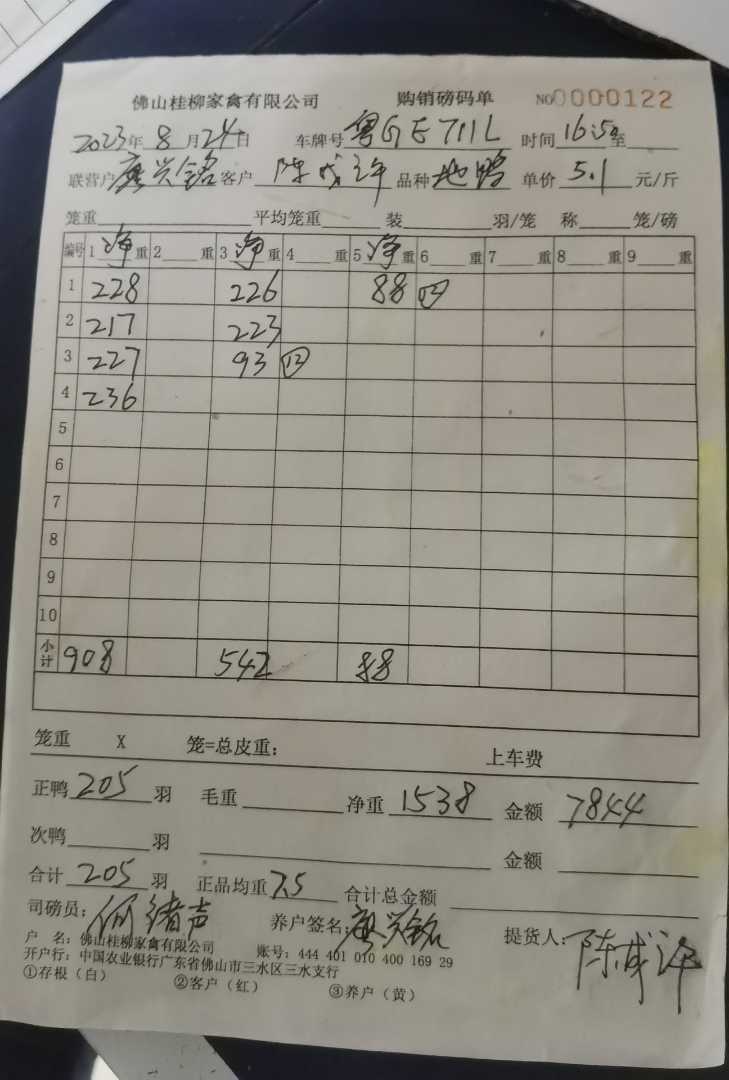 佛山桂柳家禽有限公司 购销磅码单 NO 0000122
2023年8月24日 车牌号 粤GE711L 时间 16:50至
联营户 唐兴铭 客户 陈成许 品种 地鸭 单价 5.1 元/斤
笼重 平均笼重 装 羽/笼 称 笼/磅
编号 1 净重 2 重 3 净重 4 重 5 净重 6 重 7 重 8 重 9 重
1 228 226 88 ⑫
2 217 223
3 227 93 ⑫
4 236
5
6
7
8
9
10
小计 908 542 88
笼重 X 笼=总皮重: 上车费
正鸭 205 羽 毛重 净重 1538 金额 7844
次鸭 羽 金额
合计 205 羽 正品均重 7.5 合计总金额
司磅员: 何绪声 养户签名: 唐兴铭 提货人: 陈成许
户 名: 佛山桂柳家禽有限公司 账号: 444 401 010 400 169 29
开户行: 中国农业银行广东省佛山市三水区三水支行
①存根（白） ②客户（红） ③养户（黄）